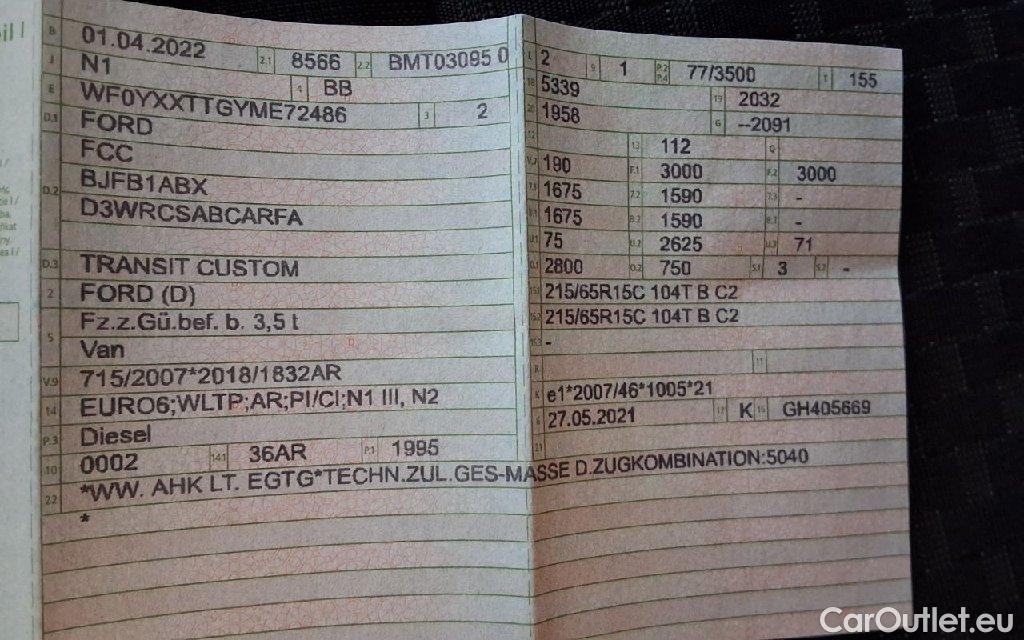 B 01.04.2022 2.1 8566 2.2 BMT03095 0
J N1 4 BB
E WF0YXXTTGYME72486 3 2
D.1 FORD
FCC
D.2 BJFB1ABX
D3WRCSABCARFA
D.3 TRANSIT CUSTOM
2 FORD (D)
5 Fz.z.Gü.bef. b. 3,5 t
Van
V.9 715/2007*2018/1832AR
14 EURO6;WLTP;AR;PI/CI;N1 III, N2
P.3 Diesel
10 0002 14.1 36AR P.1 1995
22 *WW. AHK LT. EGTG*TECHN.ZUL.GES-MASSE D.ZUGKOMBINATION:5040
*
L 2 9 1 P.2 P.4 77/3500 T 155
18 5339 19 2032
20 1958 G --2091
12 13 112 Q
V.7 190 F.1 3000 F.2 3000
7.1 1675 7.2 1590 7.3 -
8.1 1675 8.2 1590 8.3 -
U.1 75 U.2 2625 U.3 71
O.1 2800 O.2 750 S.1 3 S.2 -
15.1 215/65R15C 104T B C2
15.2 215/65R15C 104T B C2
15.3 -
R 11
K e1*2007/46*1005*21
6 27.05.2021 17 K 16 GH405669
21
CarOutlet.eu